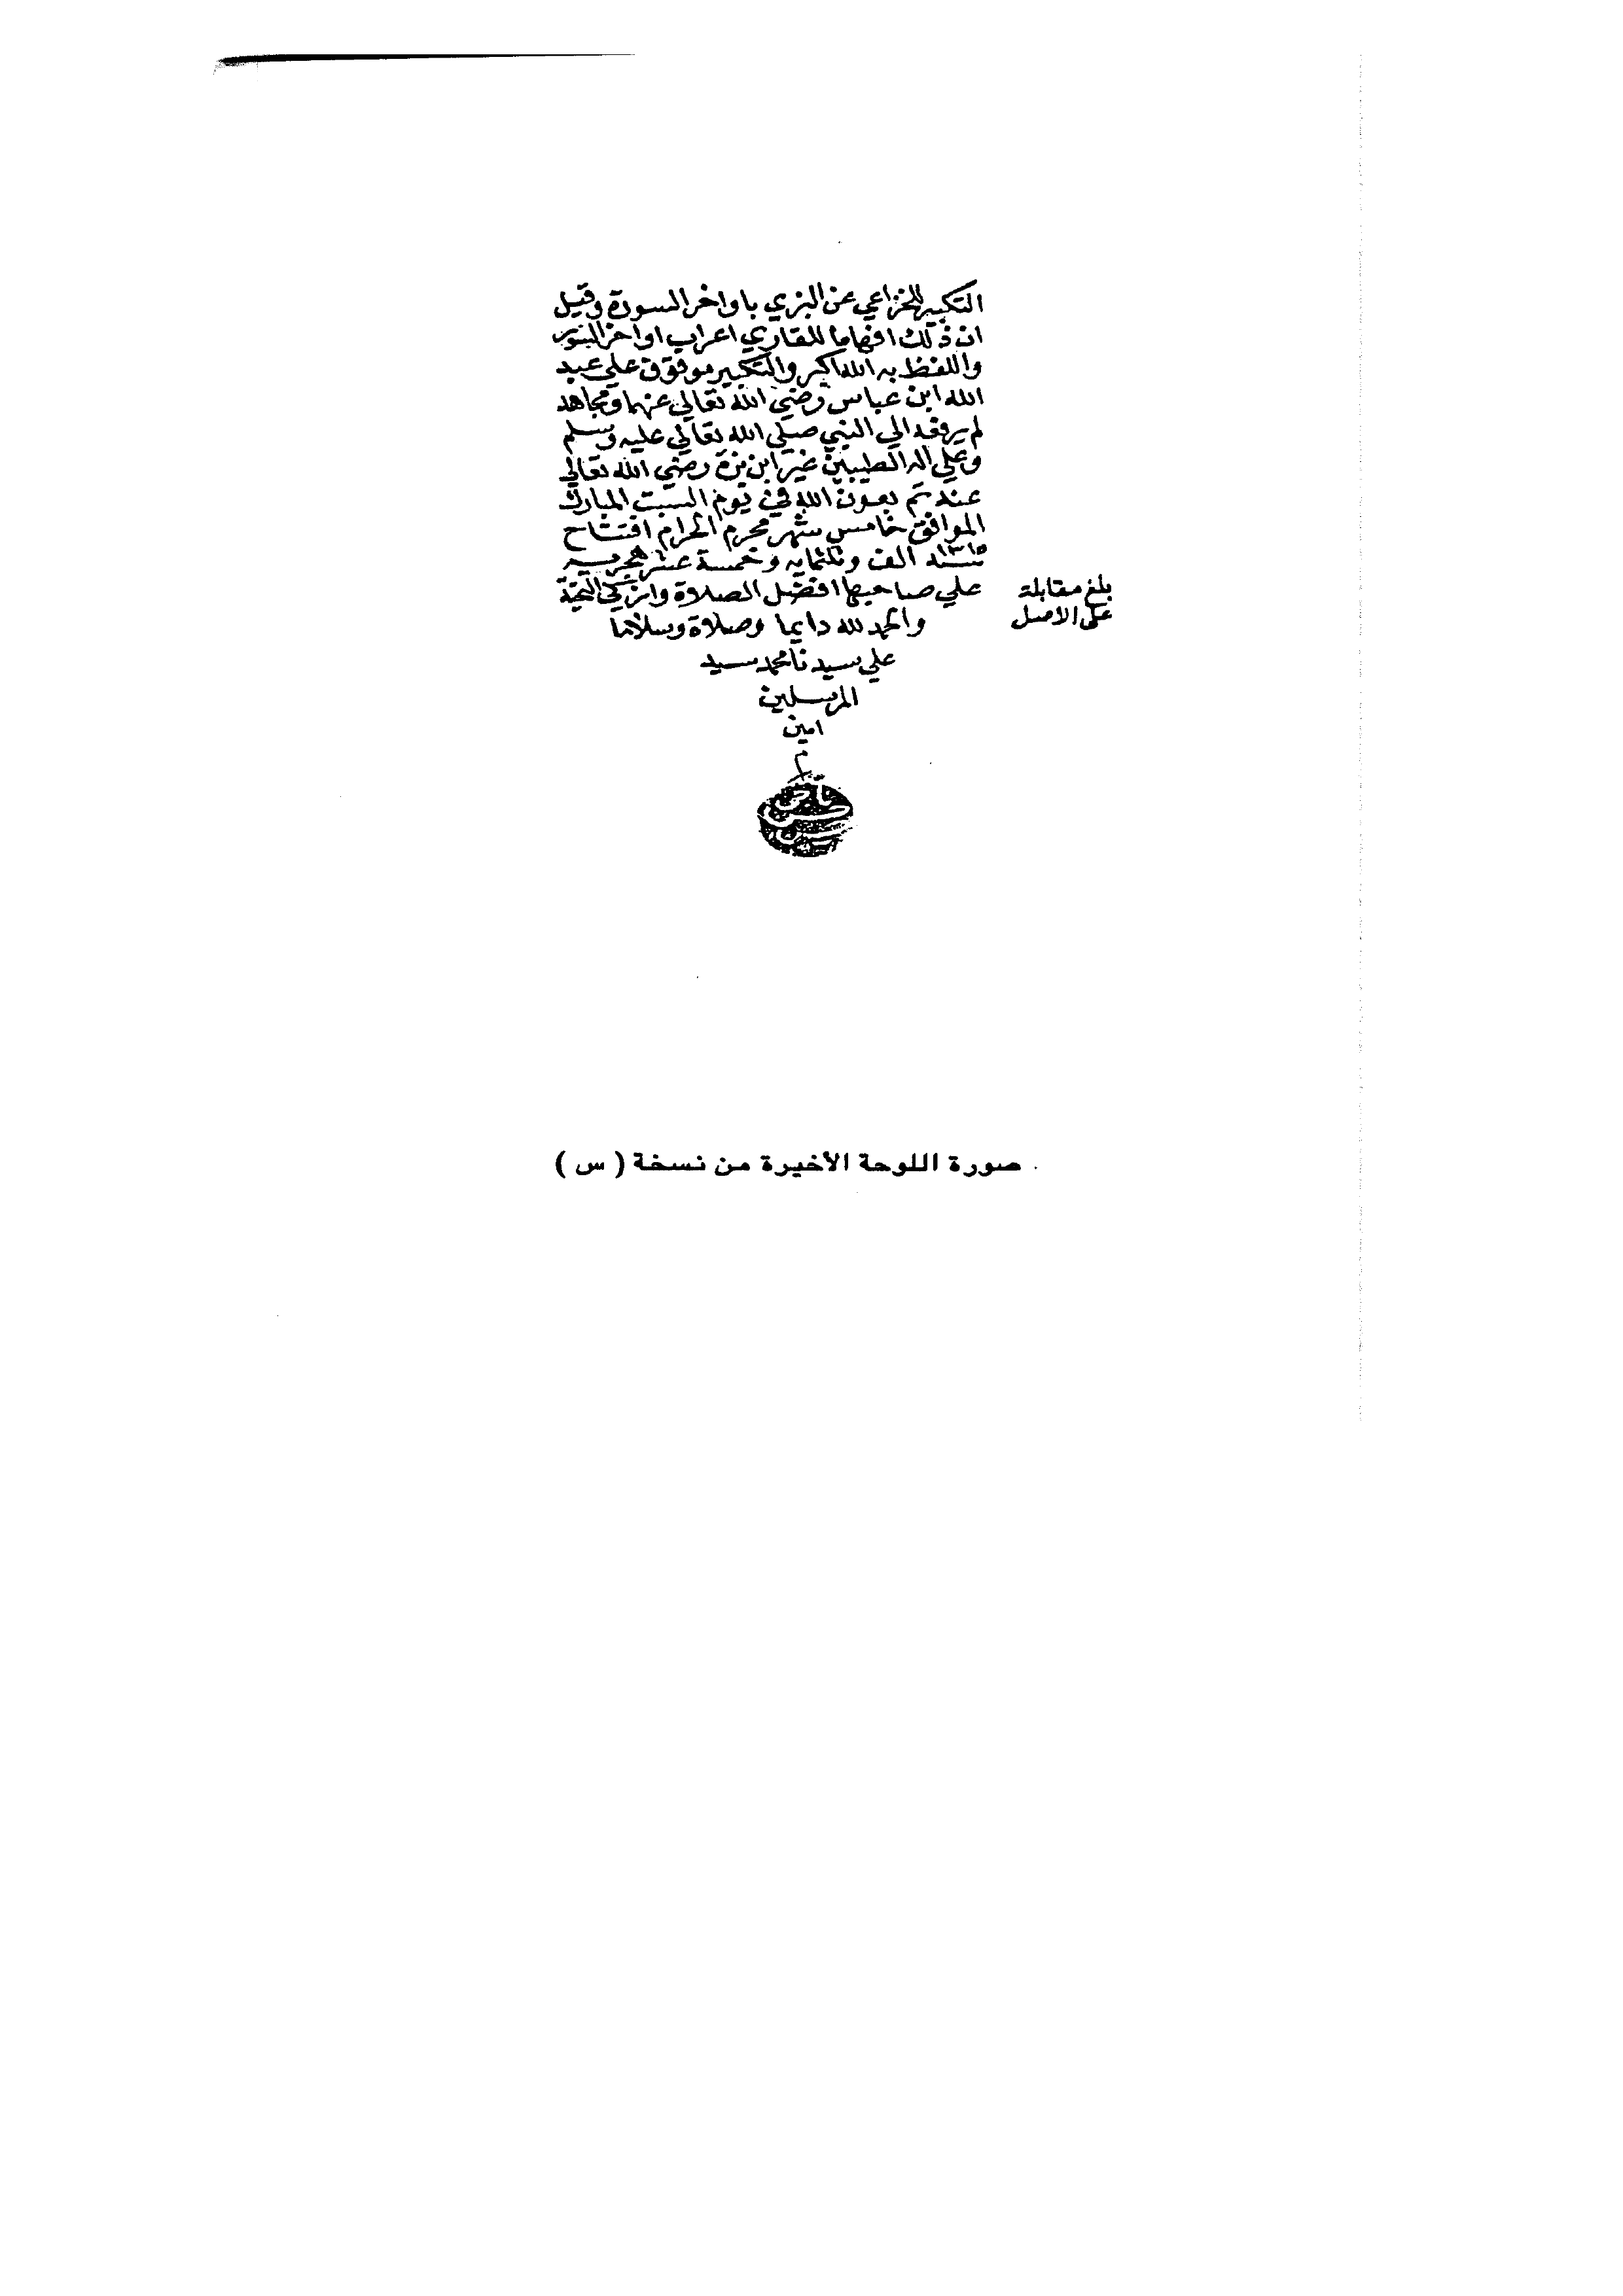 التكبير للخزاعي عن البزي باواخر السورة وقيل
ان ذلك افهاما للقاري اعراب اواخر السور
واللفظ به الله اكبر والتكبير موقوف علي عبد
الله ابن عباس رضي الله تعالي عنهما ومجاهد
لم يرفعه الي النبي صلي الله تعالي عليه وسلم
وعلي اله الطيبين غير ابن بزة رضي الله تعالي
عنه تم بعون الله في يوم السبت المبارك
الموافق خامس شهر محرم الحرام افتتاح
سنة ١٣١٥ الف وثلثمايه وخمسة عشر هجريه
علي صاحبها افضل الصلاة وازكي التحية
والحمد لله دايما وصلاة وسلاما
علي سيدنا محمد سيد
المرسلين
امين
بلغ مقابلة
على الاصل
صورة اللوحة الأخيرة من نسخة ( س )